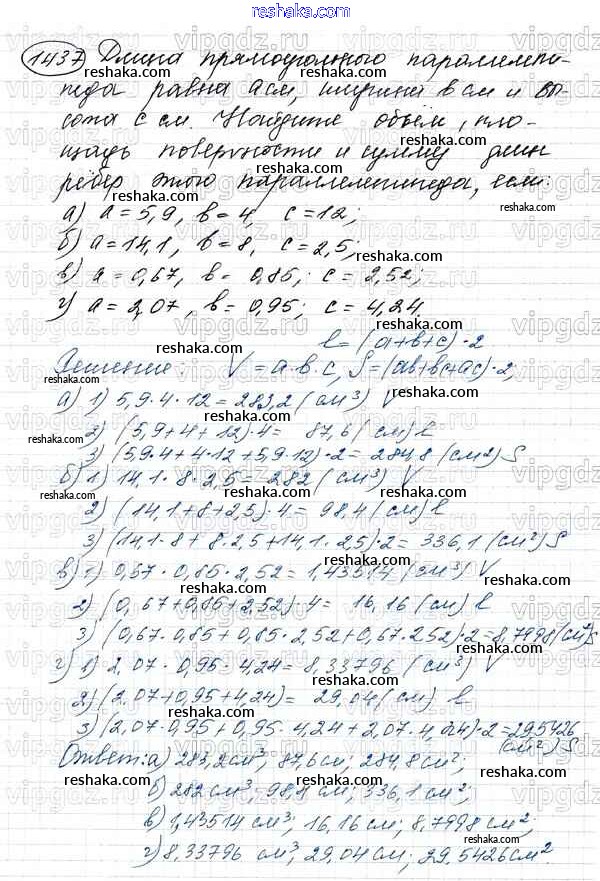 1437 Длина прямоугольного параллелепи-
педа равна a см, ширина b см и вы-
сота c см. Найдите объём, пло-
щадь поверхности и сумму длин
ребер этого параллелепипеда, если:
а) a = 5,9, b = 4, c = 12;
б) a = 14,1, b = 8, c = 2,5;
в) a = 0,67, b = 0,85; c = 2,52;
г) a = 2,07, b = 0,95; c = 4,24.
l = (a+b+c)·2
Решение: V = a·b·c, S = (ab+bc+ac)·2,
а) 1) 5,9·4·12 = 283,2 (см³) V
2) (5,9+4+12)·4 = 87,6 (см) l
3) (5,9·4+4·12+5,9·12)·2 = 284,8 (см²) S
б) 1) 14,1·8·2,5 = 282 (см³) V
2) (14,1+8+2,5)·4 = 98,4 (см) l
3) (14,1·8+8·2,5+14,1·2,5)·2 = 336,1 (см²) S
в) 1) 0,67·0,85·2,52 = 1,43514 (см³) V
2) (0,67+0,85+2,52)·4 = 16,16 (см) l
3) (0,67·0,85+0,85·2,52+0,67·2,52)·2 = 8,7998 (см²) S
г) 1) 2,07·0,95·4,24 = 8,33796 (см³) V
2) (2,07+0,95+4,24) = 29,04 (см) l
3) (2,07·0,95+0,95·4,24+2,07·4,24)·2 = 29,5426
(см²) S
Ответ: а) 283,2 см³; 87,6 см; 284,8 см²;
б) 282 см³; 98,4 см; 336,1 см²;
в) 1,43514 см³; 16,16 см; 8,7998 см²;
г) 8,33796 см³; 29,04 см; 29,5426 см²
reshaka.com
vipgdz.ru